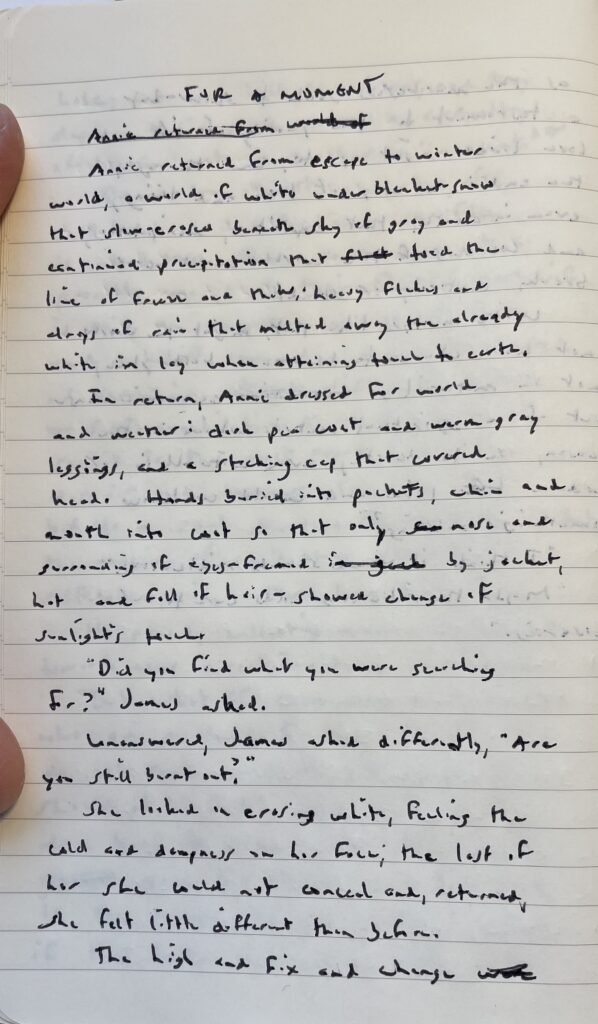 FOR A MOMENT
Annie returned from world of
Annie returned from escape to winter
world, a world of white under blanket-snow
that slow-erased beneath sky of gray and
continued precipitation that toed the
line of frozen and thaw; heavy flakes and
drops of rain that melted away the already
white in lay when attaining touch to earth.
In return, Annie dressed for world
and weather: dark pea coat and warm gray
leggings, and a stocking cap that covered
head. Hands buried into pockets, chin and
mouth into coat so that only nose and
surrounding of eyes-framed by jacket,
hat and fall of hair- showed change of
sunlight's touch.
"Did you find what you were searching
for?" James asked.
Unanswered, James asked differently, "Are
you still burnt out?"
She looked in erasing white, feeling the
cold and dampness on her face; the last of
her she could not conceal and, returned,
she felt little different than before.
The high and fix and change